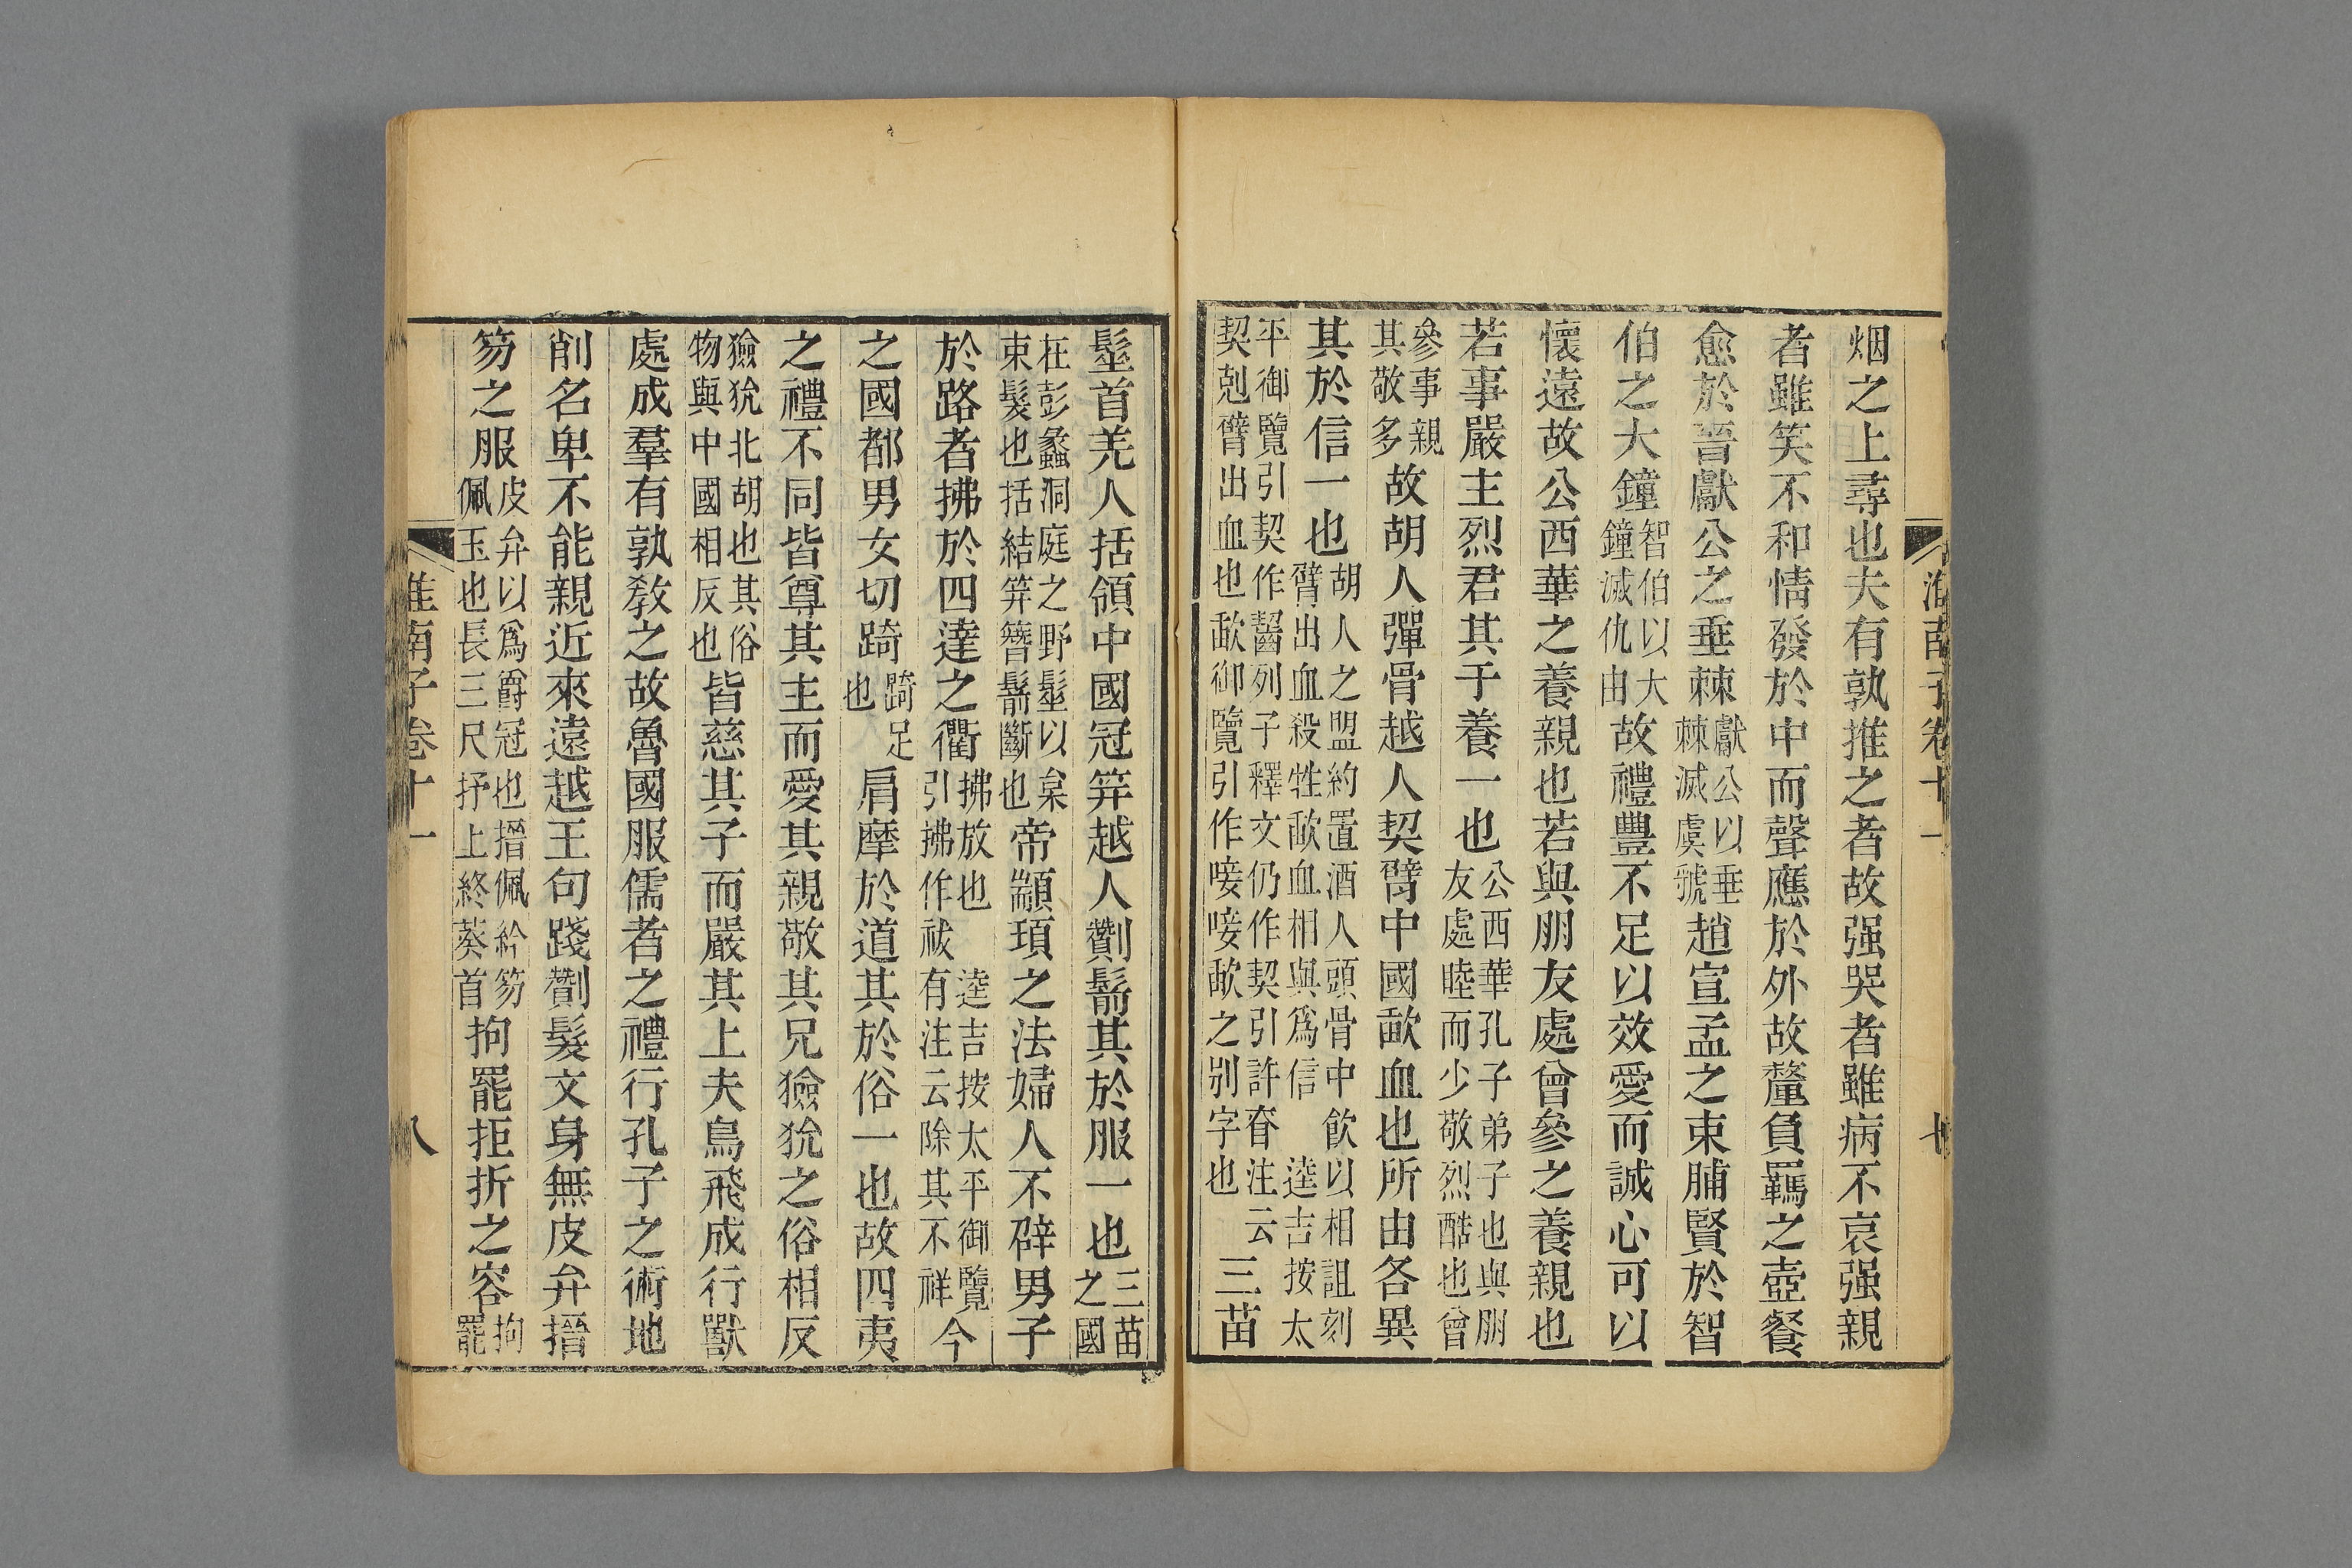 淮南子卷十一 七
烟之上尋也夫有孰推之者故强哭者雖病不哀强親
者雖笑不和情發於中而聲應於外故釐負羈之壺餐
愈於晉獻公之垂棘獻公以垂棘滅虞虢趙宣孟之束脯賢於智
伯之大鐘智伯以大鐘滅仇由故禮豐不足以效愛而誠心可以
懷遠故公西華之養親也若與朋友處曾參之養親也
若事嚴主烈君其于養一也公西華孔子弟子也與朋友處睦而少敬烈酷也曾
參事親其敬多故胡人彈骨越人契臂中國歃血也所由各異
其於信一也胡人之盟約置酒人頭骨中飲以相詛刻臂出血殺牲歃血相與爲信 逵吉按太
平御覽引契作齧列子釋文仍作契引許眘注云契剋臂出血也歃御覽引作唼唼歃之別字也三苗
髽首羌人括領中國冠笄越人劗鬋其於服一也三苗之國
在彭蠡洞庭之野髽以枲束髮也括結笄簪鬋斷也帝顓頊之法婦人不辟男子
於路者拂於四達之衢拂放也 逵吉按太平御覽引拂作祓有注云除其不祥今
之國都男女切踦踦足也肩摩於道其於俗一也故四夷
之禮不同皆尊其主而愛其親敬其兄獫狁之俗相反
獫狁北胡也其俗物與中國相反也皆慈其子而嚴其上夫鳥飛成行獸
處成羣有孰教之故魯國服儒者之禮行孔子之術地
削名卑不能親近來遠越王句踐劗髮文身無皮弁搢
笏之服皮弁以爲爵冠也搢佩紟笏佩玉也長三尺抒上終葵首拘罷拒折之容拘罷
淮南子卷十一 八